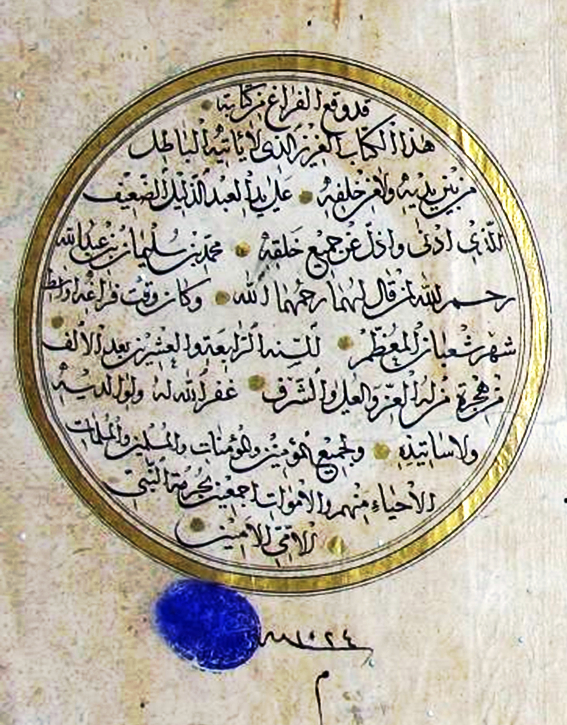 قد وقع الفراغ من كتابة
هذا الكتاب العزيز الذي لا يأتيه الباطل
من بين يديه ولا من خلفه على يد العبد الذليل الضعيف
الذي ادنى واذل عن جميع خلقه محمد بن سليمان بن عبد الله
رحم الله لمن قال لهما رحمهما الله وكان وقت فراغه اواسط
شهر شعبان المعظم للسنه الرابعة والعشرين بعد الألف
من هجرة من له العز والعلى والشرف غفر الله له ولوالديه
ولاساتيذه ولجميع المؤمنين والمؤمنات والمسلمين والمسلمات
الاحياء منهم والاموات اجمعين بحرمة النبي
الامي الامين
١٠٢٤
م